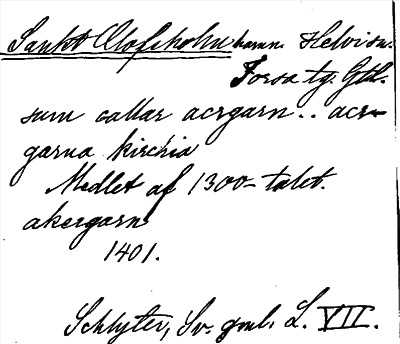 Sankt Olofsholm hamn. Hellvi sn.
Forsa tg. Gtl.
sum callar acrgarn .. acr-
garna kirchia
Medlet af 1300-talet.
akergarn
1401.
Schlyter, Sv. gml. L. VII.